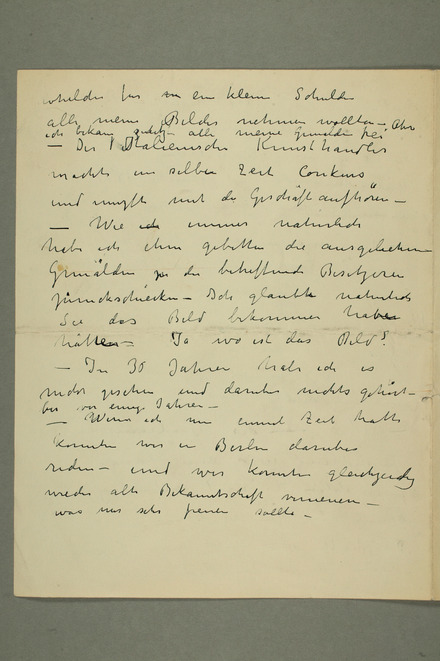 für ein kleine Schulde
alle meine Bilder nehmen wollten – Aber
ich bekam zuletzt alle meine Gemälde frei
– Der Italienische Kunsthändler
machte im selben Zeit Conkurs
und mußte mit der Geschäft aufhören –
– Wie immer natürlich
habe ich ihm gebetten die ausgeliehenen
Gemälden zu die betreffende Besitzeren
zurückschicken – Ich glaubte natürlich
Sie das Bild bekommen haben
hätten – Ja wo ist das Bild?
– In 30 Jahren habe ich es
nicht gesehen und darüber nichts gehört –
bis vor einige Jahren –
– Wenn ich nur einmal Zeit hatte
könnten wir in Berlin darüber
reden – und wir könnten gleichzeidig
wieder alte Bekanntschaft
was mir sehr freuen sollte –